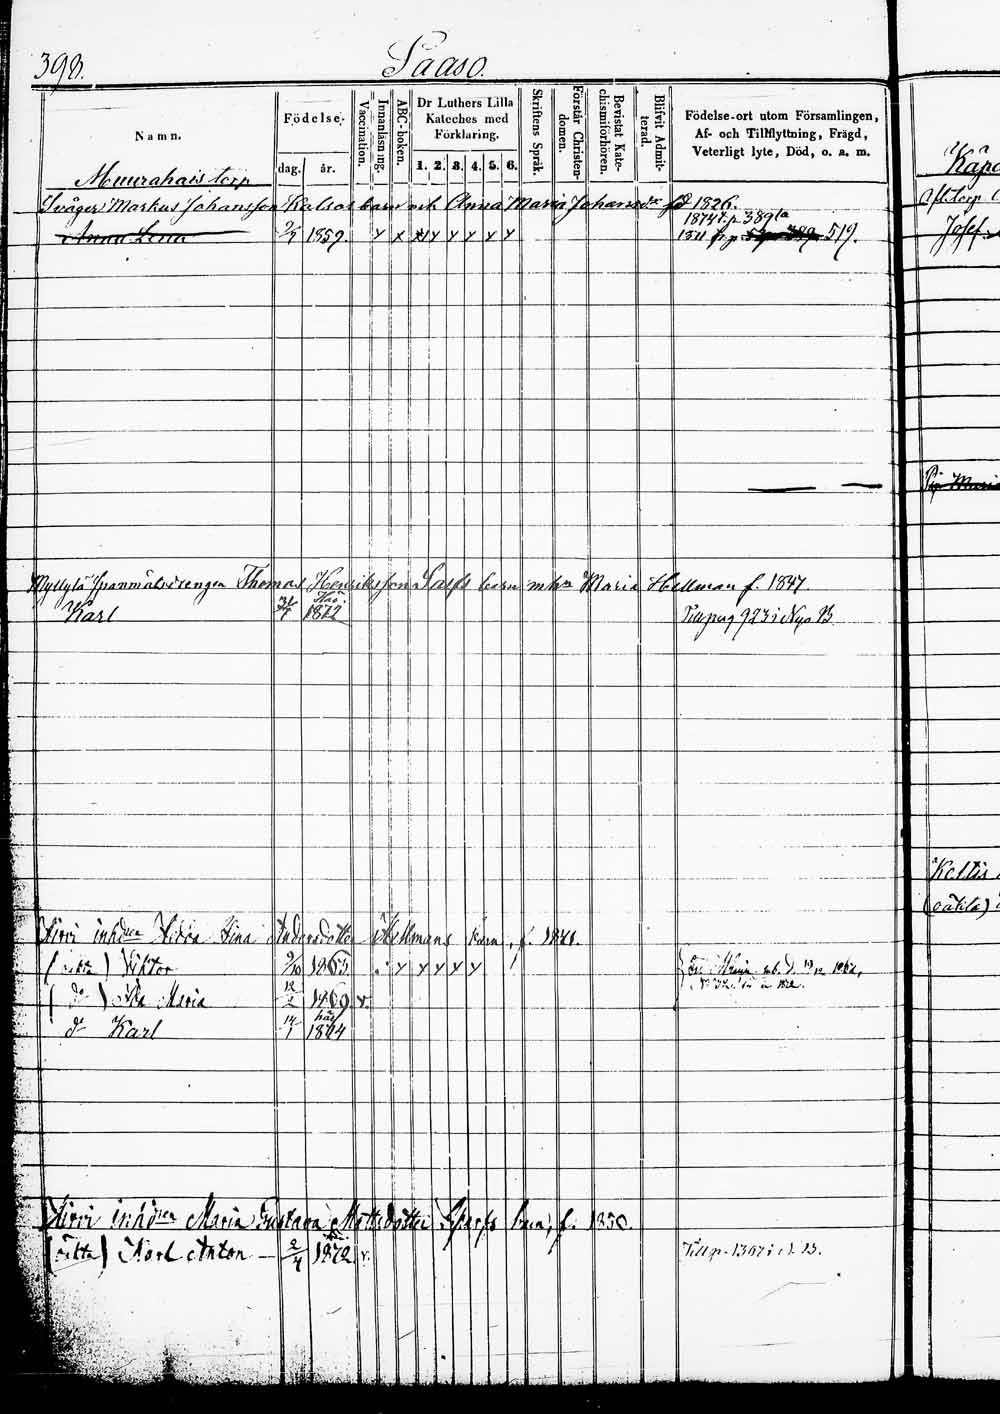 398.
Saaso.
Namn.
Födelse-
dag.
år.
Vaccination.
Innanläsning.
ABC-boken.
Dr Luthers Lilla Kateches med Förklaring.
1. 2. 3. 4. 5. 6.
Skriftens Språk.
Förstår Christendomen.
Bevistat Katechismiförhören.
Blifvit Admitterad.
Födelse-ort utom Församlingen,
Af- och Tillflyttning, Frägd,
Veterligt lyte, Död, o. a. m.
Muurahais torp
Svåger Markus Johansson Kalsos barn mh Anna Maria Johansdr fd 1826.
1874 t. p. 389
Anna Lena 1859. 519.
Myllylä Thomas Henriksson Sasfs barn Maria Hellman f. 1847.
Karl 1872 Till pag 923 i Nya B.
Hirvi inhden Hedda Lina Andersdotter Hellmans barn, f. 1841.
(oäkta) Viktor 9/10 1863
(do) Ida Maria 12/2 1869 v.
do Karl 14/1 1874
Hirvi inhden Maria Gustava Mattsdotter Sparfs barn, f. 1850.
(oäkta) Karl Anton - 2/4 1872. v. Till p. 1367 i N. B.
Josef
Maria
Keltis
(oäkta)